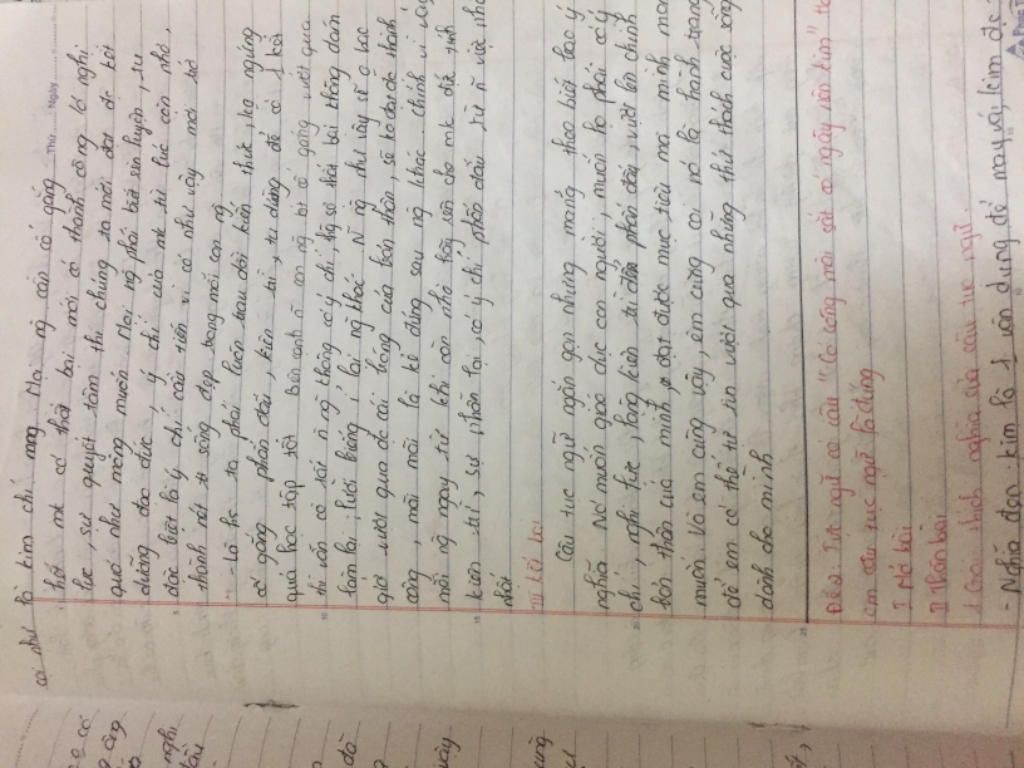 coi như là kim chỉ nang. Mọi ng cần cố gắng
hết mk có thất bại mới có thành công có nghị
lực, sự quyết tâm thì chúng ta mới đạt đc kết
quả như mong muốn. Mọi ng phải biết rèn luyện, tu
dưỡng đạo đức, ý chí của mk từ lúc còn nhỏ,
đặc biệt là ý chí cầu tiến vì có như vậy mới trở
thành nét sống đẹp trong mỗi con ng
- Là hs ta phải luôn trau dồi kiến thức, ko ngừng
cố gắng phấn đấu, kiên trì, tự dùng để có 1 kết
quả học tập tốt. Bên cạnh n con ng bt cố gắng vượt qua
thì vẫn có 1 số n ng không có ý chí, ng sợ thất bại không dám
làm lại, lười biếng, ỉ lại ng khác. N ng như vậy sẽ k bao
giờ vượt qua đc cái bóng của bản thân, sẽ ko bao giờ thành
công, mãi mãi là kẻ đứng sau ng khác. chính vì vậy
mỗi ng ngay từ khi còn nhỏ hãy rèn cho mk đức tính
kiên trì, sự nhẫn lại, có ý chí phấn đấu từ n việc nhỏ
nhất
III Kết bài
Câu tục ngữ ngắn gọn nhưng mang theo biết bao ý
nghĩa. Nó muốn giáo dục con người, muốn họ phải có ý
chí, nghị lực, lòng kiên trì phấn đấu, vượt lên chính
bản thân của mình, đạt được mục tiêu mà mình mong
muốn. Và em cũng vậy, em cũng coi nó là hành trang
để em có thể tự tin vượt qua những thử thách cuộc sống
dành cho mình
Đề 2: Tục ngữ có câu "Có công mài sắt có ngày nên kim" to
cm câu tục ngữ là đúng
I Mở bài
II Thân bài
1 Giải thích nghĩa của câu tục ngữ
- Nghĩa đen: kim là 1 vận dụng để may vá, kim đc
Thứ Ngày
5
10
15
20
25